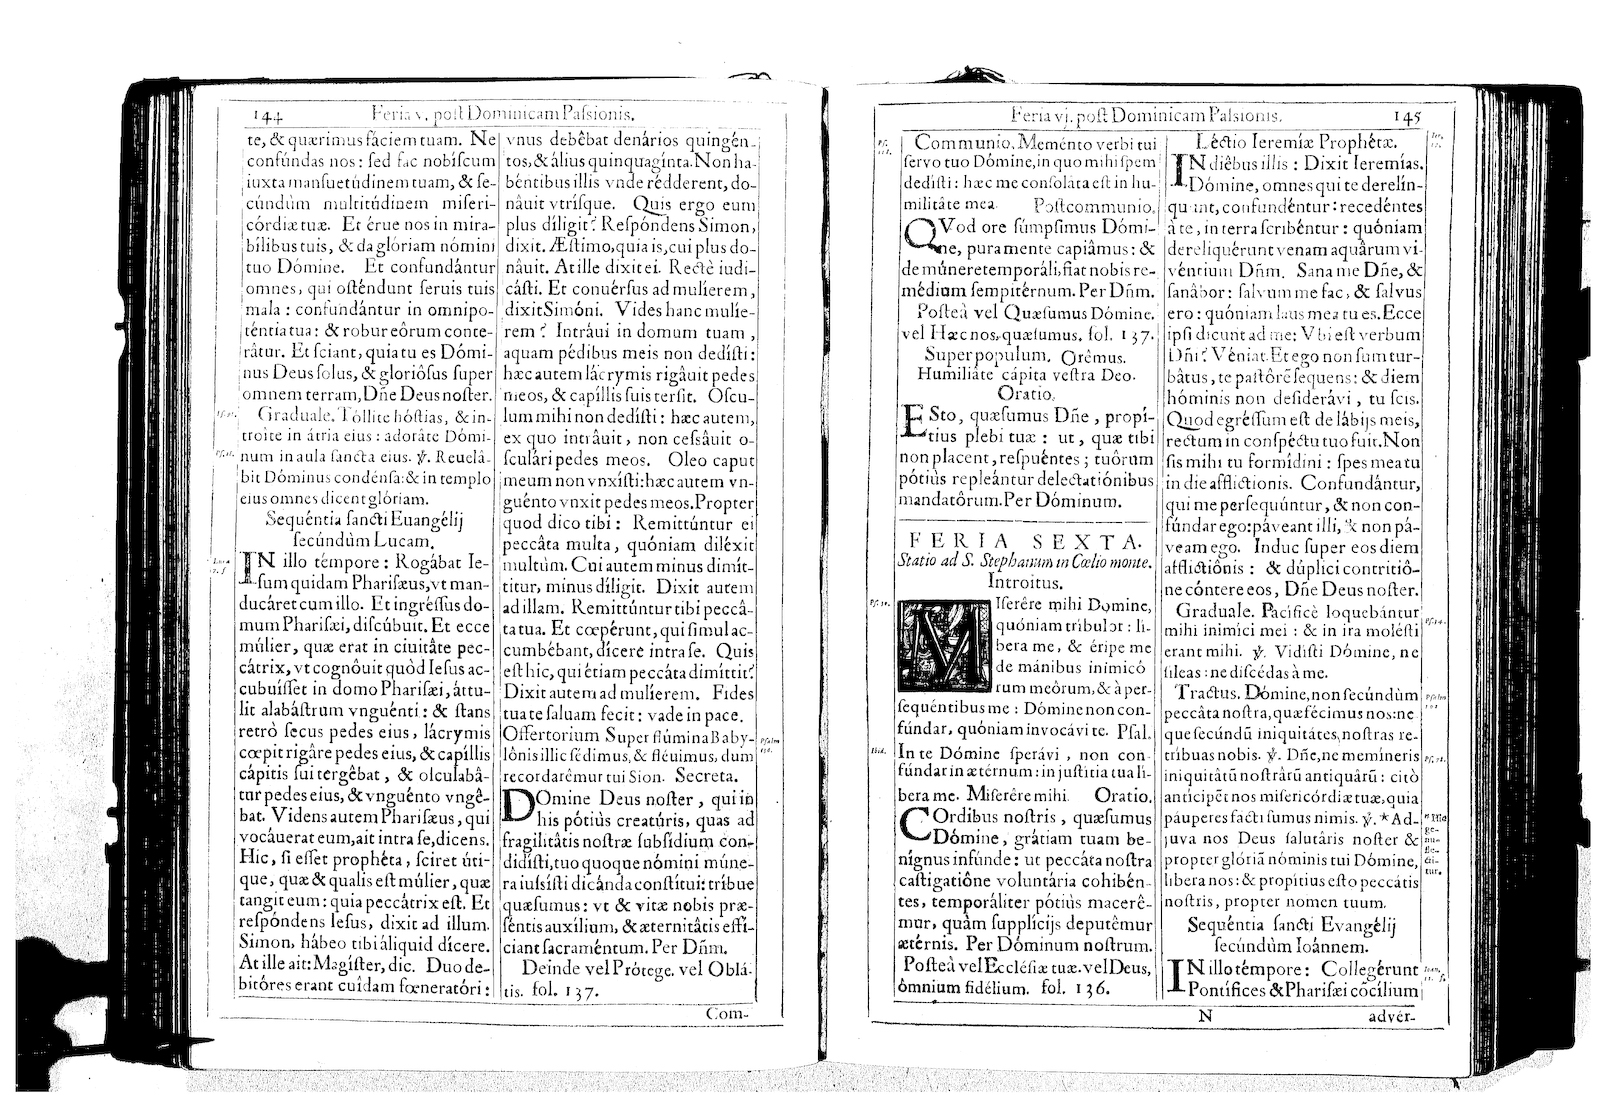 144 Feria v. poſt Dominicam Paſsionis.
te, & quærimus fáciem tuam. Ne
confúndas nos: ſed fac nobiſcum
iuxta manſuetúdinem tuam, & ſe-
cúndùm multitúdinem miſeri-
córdiæ tuæ. Et érue nos in mira-
bílibus tuis, & da glóriam nómini
tuo Dómine. Et confundântur
omnes, qui oſténdunt ſeruis tuis
mala: confundántur in omnipo-
téntia tua: & robur eôrum conte-
râtur. Et ſciant, quia tu es Dómi-
nus Deus ſolus, & gloriôſus ſuper
omnem terram, Dñe Deus noſter.
Graduale. Tóllite hóſtias, & in-
troíte in átria eius: adorâte Dómi-
num in aula ſancta eius. ℣. Reuelâ-
bit Dóminus condénſa: & in templo
eius omnes dicent glóriam.
Sequéntia ſancti Euangélij
ſecúndùm Lucam.
IN illo témpore: Rogâbat Ie-
ſum quidam Phariſæus, vt man-
ducáret cum illo. Et ingréſſus do-
mum Phariſæi, diſcúbuit. Et ecce
múlier, quæ erat in ciuitâte pec-
cátrix, vt cognôuit quòd Ieſus ac-
cubuíſſet in domo Phariſæi, áttu-
lit alabáſtrum vnguénti: & ſtans
retrò ſecus pedes eius, lácrymis
cœpit rigâre pedes eius, & capíllis
cápitis ſui tergêbat, & oſculabâ-
tur pedes eius, & vnguénto vngê-
bat. Videns autem Phariſæus, qui
vocáuerat eum, ait intra ſe, dicens.
Hic, ſi eſſet prophéta, ſciret úti-
que, quæ & qualis eſt múlier, quæ
tangit eum: quia peccátrix eſt. Et
reſpóndens Ieſus, dixit ad illum.
Simon, hábeo tibi áliquid dícere.
At ille ait: Magíſter, dic. Duo de-
bitóres erant cuîdam fœneratóri:
vnus debêbat denários quingén-
tos, & álius quinquagínta. Non ha-
béntibus illis vnde rédderent, do-
nâuit vtríſque. Quis ergo eum
plus díligit? Reſpóndens Simon,
dixit. Æſtimo, quia is, cui plus do-
nâuit. At ille dixit ei. Rectè iudi-
cáſti. Et conuérſus ad mulíerem,
dixit Simóni. Vides hanc mulíe-
rem? Intrâui in domum tuam,
aquam pédibus meis non dedíſti:
hæc autem lácrymis rigâuit pedes
meos, & capíllis ſuis terſit. Oſcu-
lum mihi non dedíſti: hæc autem,
ex quo intrâuit, non ceſsâuit o-
ſculári pedes meos. Oleo caput
meum non vnxíſti: hæc autem vn-
guénto vnxit pedes meos. Propter
quod dico tibi: Remittúntur ei
peccâta multa, quóniam diléxit
multùm. Cui autem minus dimít-
titur, minus díligit. Dixit autem
ad illam. Remittúntur tibi peccâ-
ta tua. Et cœpérunt, qui ſimul ac-
cumbébant, dícere intra ſe. Quis
eſt hic, qui étiam peccáta dimíttit?
Dixit autem ad mulíerem. Fides
tua te ſaluam fecit: vade in pace.
Offertorium Super flúmina Baby-
lônis illic ſédimus, & fléuimus, dum
recordarémur tui Sion. Secreta.
DOmine Deus noſter, qui in
his pótiùs creatúris, quas ad
fragilitâtis noſtræ ſubſídium con-
didíſti, tuo quoque nómini múne-
ra iuſsíſti dicánda conſtítui: tríbue
quæſumus: vt & vitæ nobis præ-
ſéntis auxílium, & æternitâtis effí-
ciant ſacraméntum. Per Dñm.
Deinde vel Prótege. vel Oblá-
tis. fol. 137.
Com-
Feria vj. poſt Dominicam Paſsionis. 145
Communio. Meménto verbi tui
ſervo tuo Dómine, in quo mihi ſpem
dediſti: hæc me conſolâta eſt in hu-
militâte mea. Poſtcommunio.
QVod ore ſúmpſimus Dómi-
ne, pura mente capiâmus: &
de múnere temporáli, fiat nobis re-
médium ſempitérnum. Per Dñm.
Poſteà vel Quæſumus Dómine.
vel Hæc nos, quæſumus. fol. 137.
Super populum. Orêmus.
Humiliâte cápita veſtra Deo.
Oratio.
ESto, quæſumus Dñe, propí-
tius plebi tuæ: ut, quæ tibi
non placent, reſpuéntes; tuôrum
pótiùs repleántur delectatiónibus
mandatôrum. Per Dóminum.
FERIA SEXTA.
Statio ad S. Stephanum in Cœlio monte.
Introitus.
MIſerére mihi Domine,
quóniam tribulor: lí-
bera me, & éripe me
de mánibus inimicó
rum meôrum, & à per-
ſequéntibus me: Dómine non con-
fúndar, quóniam invocávi te. Pſal.
In te Dómine ſperávi, non con
fúndar in ætérnum: in juſtítia tua lí-
bera me. Miſerére mihi. Oratio.
COrdibus noſtris, quæſumus
Dómine, grátiam tuam be-
nígnus infúnde: ut peccáta noſtra
caſtigatiône voluntária cohibén-
tes, temporáliter pótiùs macerê-
mur, quàm ſupplícijs deputêmur
ætérnis. Per Dóminum noſtrum.
Poſteà vel Eccléſiæ tuæ. vel Deus,
ómnium fidélium. fol. 136.
Léctio Ieremíæ Prophétæ.
IN diêbus illis: Dixit Ieremías.
Dómine, omnes qui te derelín-
quunt, confundéntur: recedéntes
à te, in terra ſcribéntur: quóniam
dereliquérunt venam aquârum vi-
véntium Dñm. Sana me Dñe, &
ſanâbor: ſalvum me fac, & ſalvus
ero: quóniam laus mea tu es. Ecce
ipſi dicunt ad me: Vbi eſt verbum
Dñi? Véniat. Et ego non ſum tur-
bâtus, te paſtórẽ ſequens: & diem
hóminis non deſiderávi, tu ſcis.
Quod egréſſum eſt de lábijs meis,
rectum in conſpéctu tuo fuit. Non
ſis mihi tu formídini: ſpes mea tu
in die afflictiónis. Confundántur,
qui me perſequúntur, & non con-
fúndar ego: páveant illi, & non pá-
veam ego. Induc ſuper eos diem
afflictiônis: & dúplici contritiô-
ne cóntere eos, Dñe Deus noſter.
Graduale. Pacíficè loquebántur
mihi inimíci mei: & in ira moléſti
erant mihi. ℣. Vidíſti Dómine, ne
ſíleas: ne diſcédas à me.
Tractus. Dómine, non ſecúndùm
peccáta noſtra, quæ fécimus nos: ne
que ſecúndũ iniquitátes noſtras re-
tríbuas nobis. ℣. Dñe, ne memíneris
iniquitátũ noſtrárũ antiquárũ: citò
antícipẽt nos miſericórdiæ tuæ, quia
páuperes facti ſumus nimis. ℣. * Ad-
juva nos Deus ſalutáris noſter &
propter glóriã nóminis tui Dómine,
líbera nos: & propítius eſto peccátis
noſtris, propter nomen tuum.
* Hîc
ge-
nu-
fle-
cti-
tur.
Sequéntia ſancti Evangélij
ſecúndùm Ioánnem.
IN illo témpore: Collegérunt
Pontífices & Phariſæi cõcílium
N
advér-